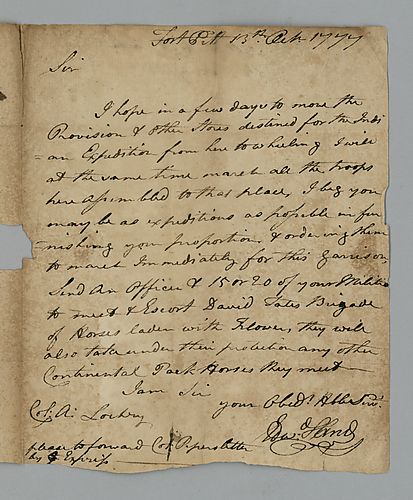 Fort Pitt 13th Octr 1777
Sir
I hope in a few days to move the
Provision & Other Stores destined for the Indi
an Expedition from here to Wheeling I will
at the same time march all the troops
here Assembled to that place, I beg you
may be as expeditious as possible in fur
nishing your proportion, & ordering them
to march Immediately for this Garrison
Send An Officer & 15 or 20 of your Militia
to meet & Escort David Tates Brigade
of Horses laden with Flower, they will
also take under their protection any other
Continental Pack Horses they meet
I am Sir
your Obedt Hble Servt
Edwd Hand
Col: A: Lochry
please to forward Col Pipers letter
by Express